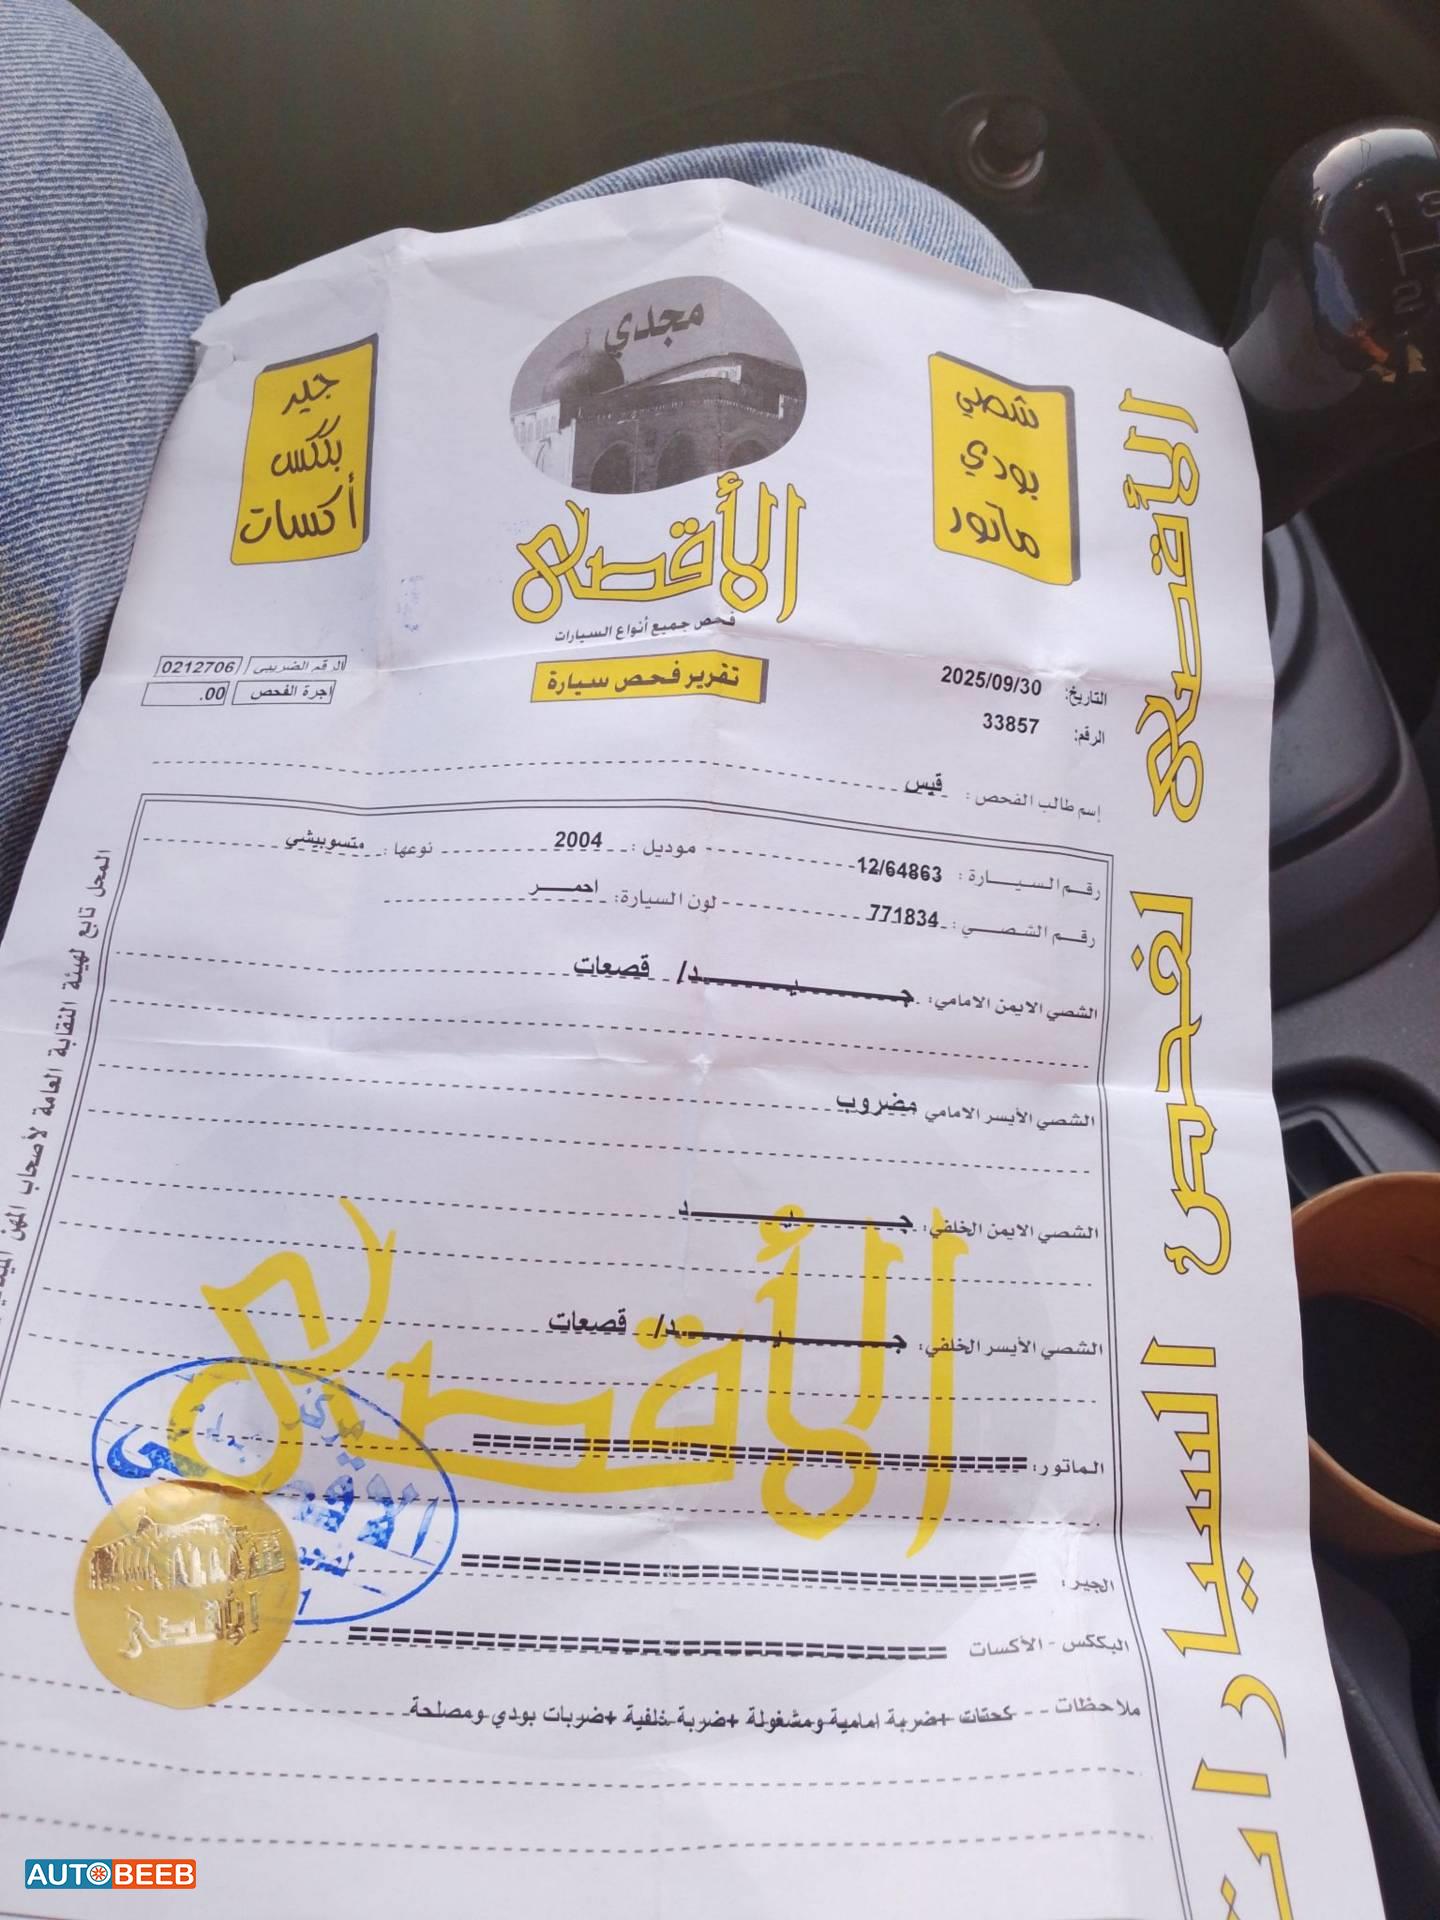 مجدي
الأقصى
فحص جميع أنواع السيارات
تقرير فحص سيارة
شصي
بودي
ماتور
جير
بككس
أكسات
التاريخ: 2025/09/30
الرقم: 33857
الرقم الضريبي 0212706
اجرة الفحص .00
إسم طالب الفحص: قيس
رقم السيارة: 12/64863 موديل: 2004 نوعها: متسوبيشي
رقم الشصي: 771834 لون السيارة: احمر
الشصي الايمن الامامي: جيد/ قصعات
الشصي الأيسر الامامي مضروب
الشصي الايمن الخلفي: جيد
الشصي الأيسر الخلفي: جيد/ قصعات
الماتور:
الجير:
البككس - الأكسات
ملاحظات كحتات +ضربة امامية ومشغولة +ضربة خلفية +ضربات بودي ومصلحة
الأقصى
مركز
الاقصى
الأقصى
المحل تابع لهيئة النقابة العامة لأصحاب المهن
الأقصى لفحص السيارات
1 3
2
AUTOBEEB